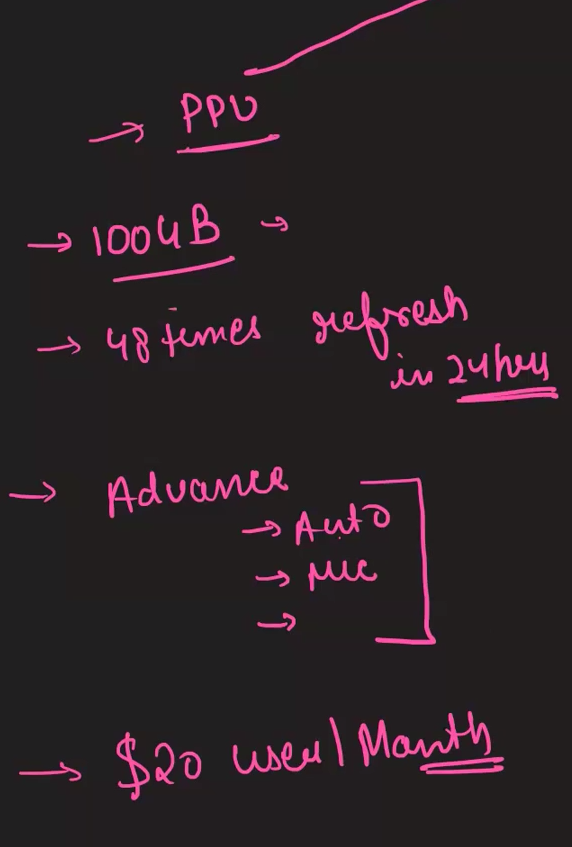 → PPU
→ 100GB →
→ 48 times refresh
in 24 hrs
→ Advance
→ Auto
→
→
→ $20 user/Month